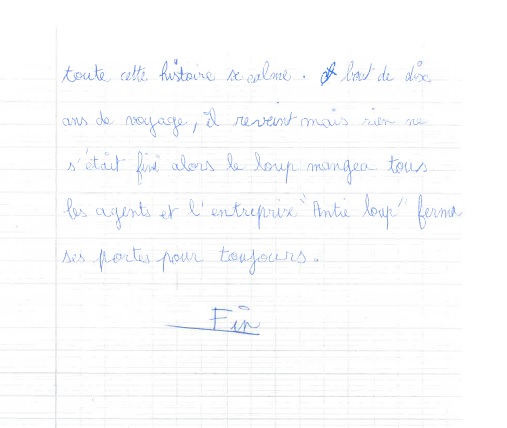 toute cette histoire se calme. Au bout de dix
ans de voyage, il reveint mais rien ne
s'était fini alors le loup mangea tous
les agents et l'entreprise "Antie loup" ferma
ses portes pour toujours.
Fin